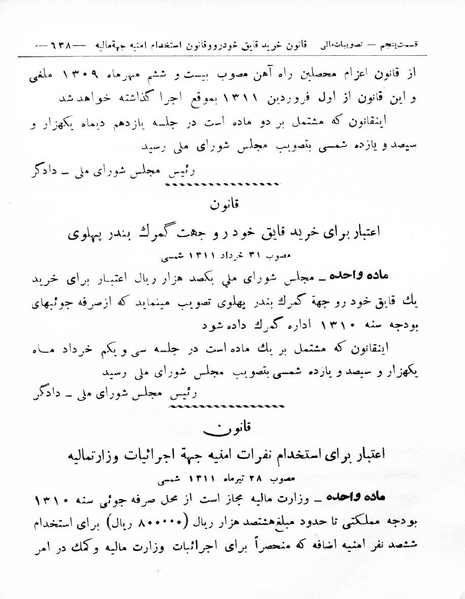 قسمت پنجم — تصویبات مالی    قانون خرید قایق خودرو و قانون استخدام امنیه جهة مالیه    —٦٣٨—
از قانون اعزام محصلین راه آهن مصوب بیست و ششم مهرماه ١٣٠٩ ملغی
و این قانون از اول فروردین ١٣١١ بموقع اجرا گذاشته خواهد شد
اینقانون که مشتمل بر دو ماده است در جلسه یازدهم دیماه یکهزار و
سیصد و یازده شمسی بتصویب مجلس شورای ملی رسید
رئیس مجلس شورای ملی ـ دادگر
قانون
اعتبار برای خرید قایق خودرو جهت گمرك بندر پهلوی
مصوب ٣١ خرداد ١٣١١ شمسی
ماده واحده ـ مجلس شورای ملی یکصد هزار ریال اعتبار برای خرید
یك قایق خود رو جهة گمرك بندر پهلوی تصویب مینماید که ازصرفه جوئیهای
بودجه سنه ١٣١٠ اداره گمرك داده شود
اینقانون که مشتمل بر یك ماده است در جلسه سی و یکم خرداد ماه
یکهزار و سیصد و یازده شمسی بتصویب مجلس شورای ملی رسید
رئیس مجلس شورای ملی ـ دادگر
قانون
اعتبار برای استخدام نفرات امنیه جهة اجرائیات وزارتمالیه
مصوب ٢٨ تیرماه ١٣١١ شمسی
ماده واحده ـ وزارت مالیه مجاز است از محل صرفه جوئی سنه ١٣١٠
بودجه مملکتی تا حدود مبلغ هشتصد هزار ریال (٨٠٠٠٠٠ ریال) برای استخدام
ششصد نفر امنیه اضافه که منحصراً برای اجرائیات وزارت مالیه و کمك در امر